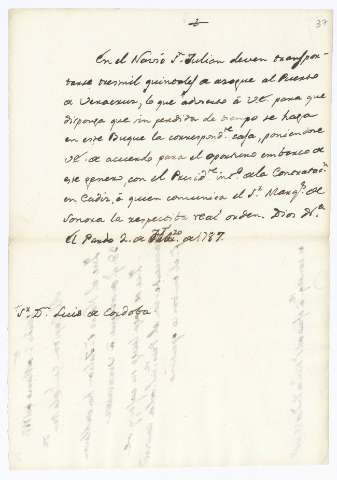 37
En el Navio Sn. Julian deven transpor-
tarse tres mil quintales de azogue al Puerto
de Veracruz, lo que adverso à VE. para que
disponga que sin perdida de tiempo se haga
en este Buque la correspondte. caja, poniendose
VE. de acuerdo para el oportuno embarco de
este genero, con el Presidte. into. de la Contratacn.
en Cadiz, à quien comunica el Sr. Marqs. de
Sonora la respectiva real orden. Dios
El Pardo 2. de de 1787.
Sr. Dn. Luis de Cordoba